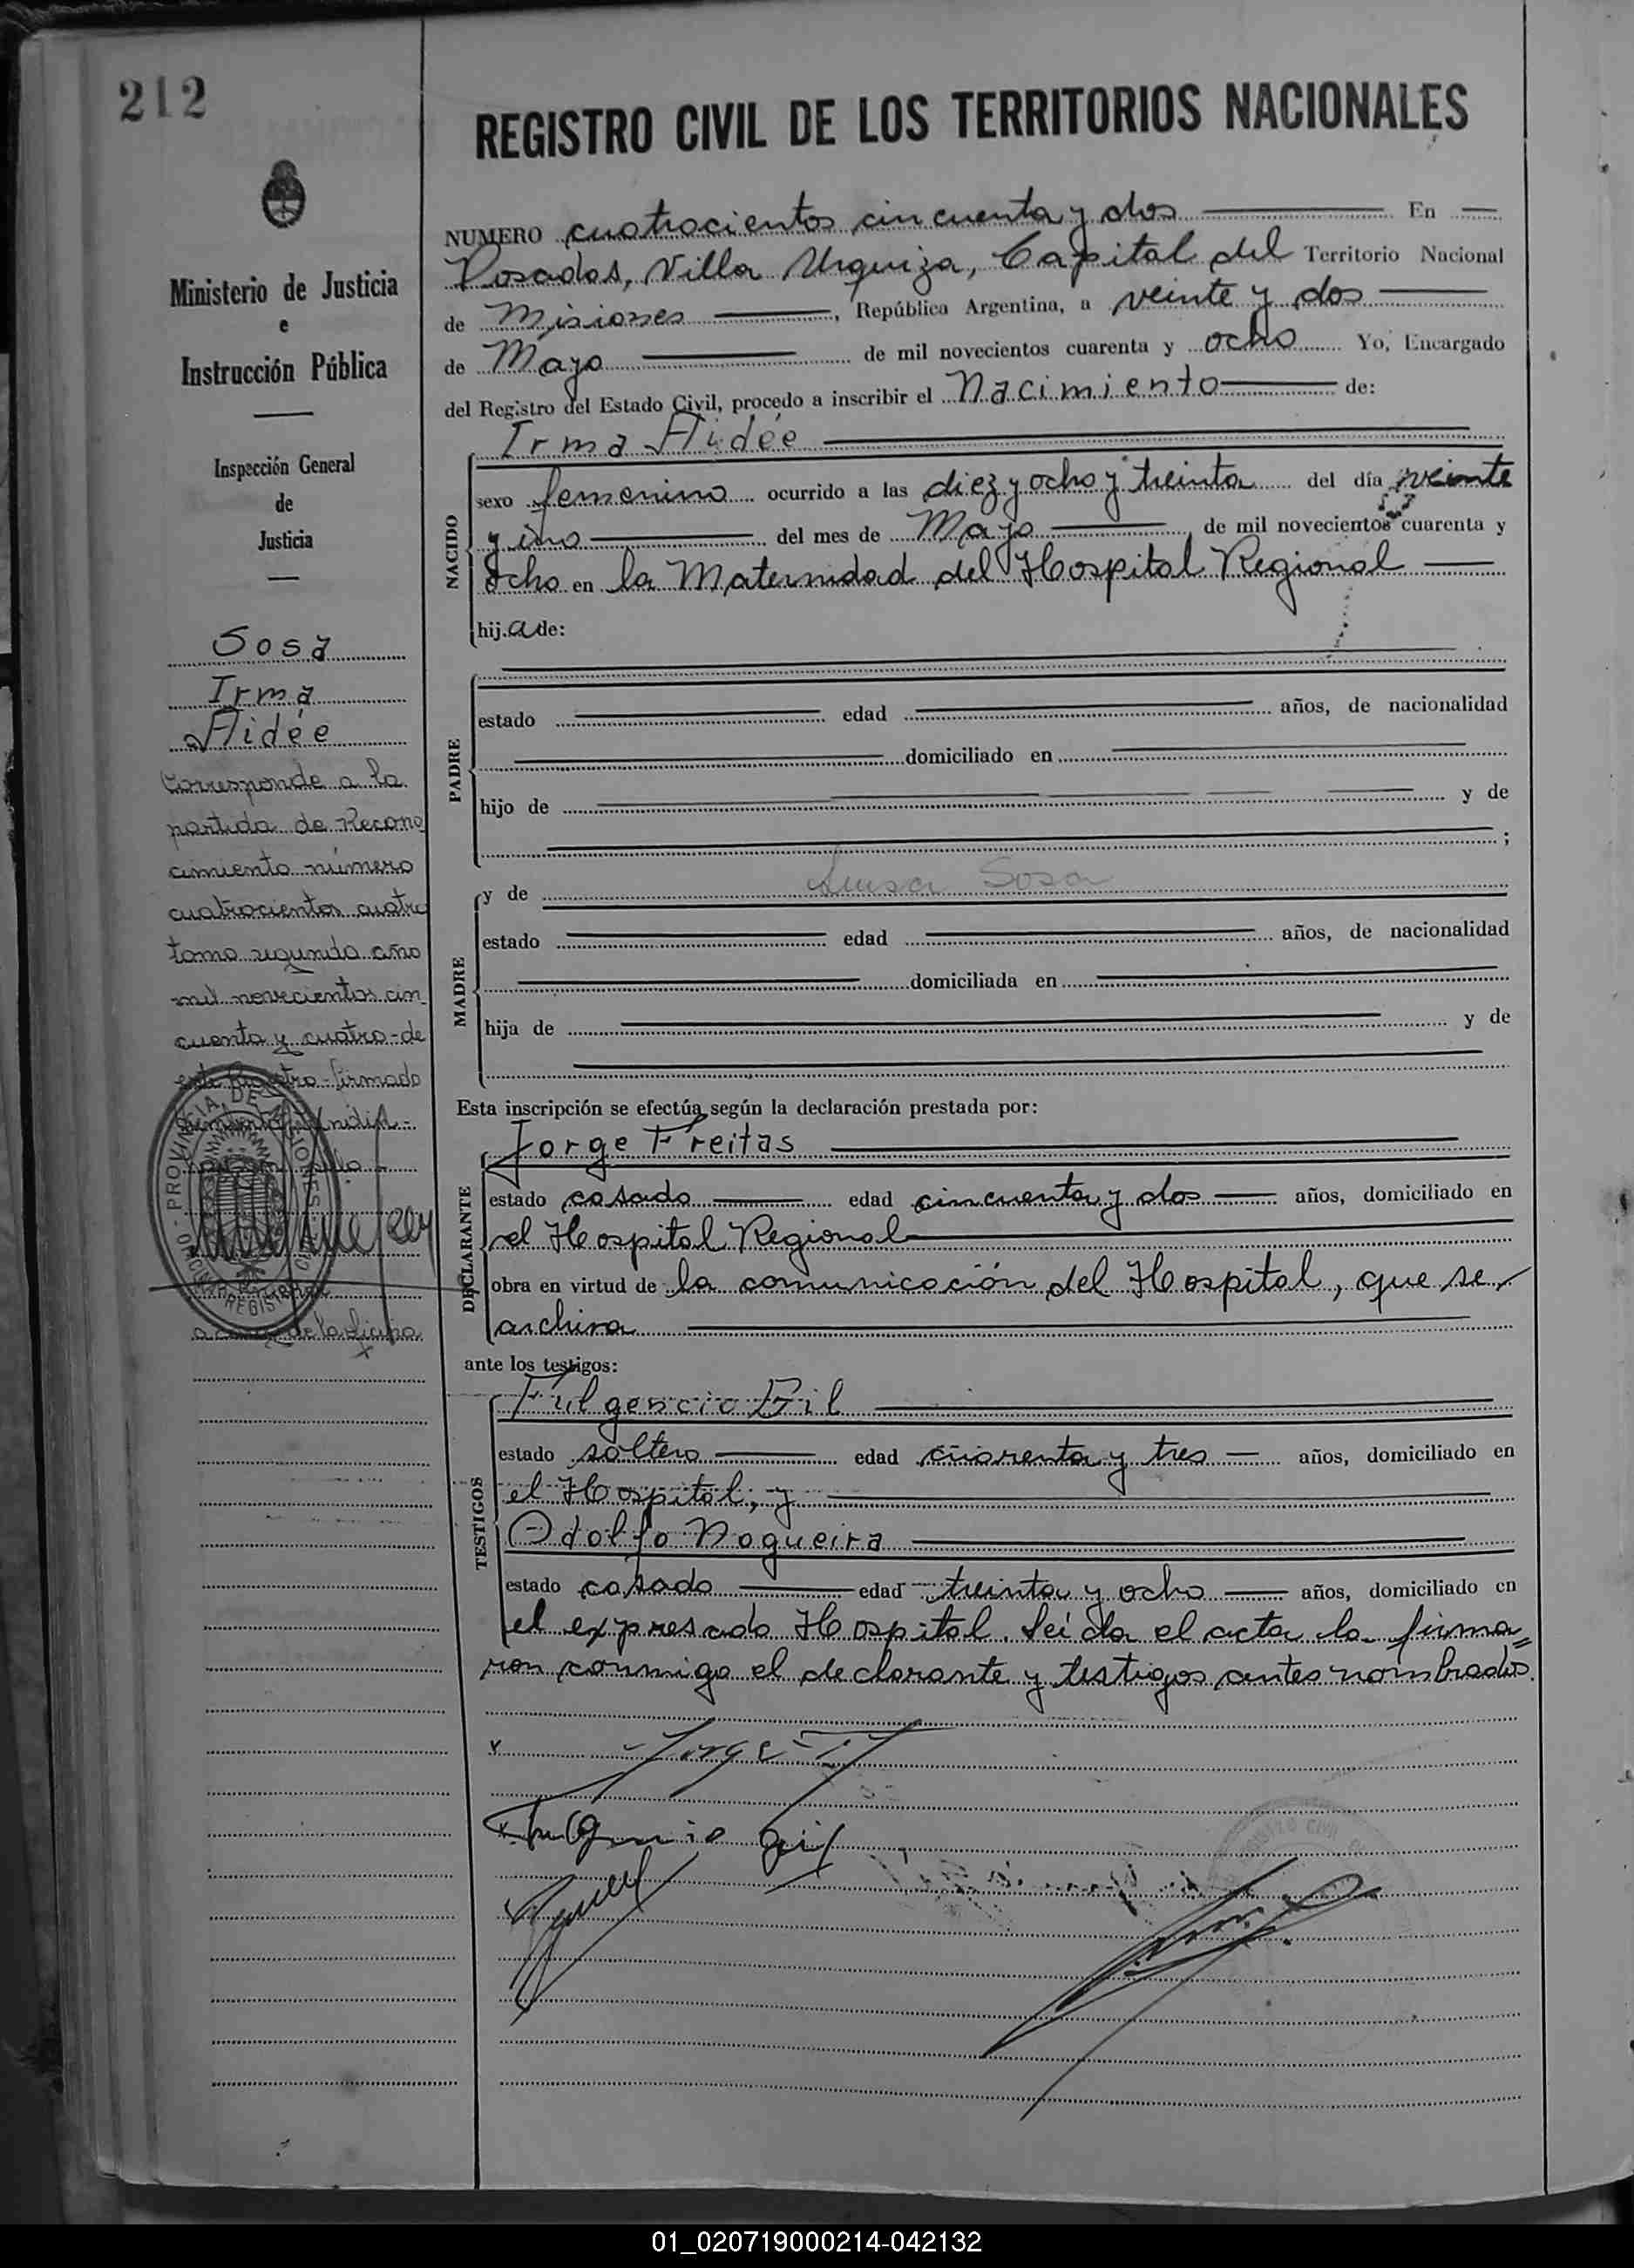 212
REGISTRO CIVIL DE LOS TERRITORIOS NACIONALES
Ministerio de Justicia
e
Instrucción Pública
Inspección General
de
Justicia
Sosa
Irma
Aidée
Corresponde a la
partida de Recono
cimiento número
cuatrocientos cuatro
tomo segundo año
mil novecientos cin
cuenta y cuatro - de
este Registro - firmado
a cargo de la oficina
PROVINCIA DE MISIONES
NUMERO cuatrocientos cincuenta y dos En
Posadas, Villa Urquiza, Capital del Territorio Nacional
de Misiones, República Argentina, a veinte y dos
de Mayo de mil novecientos cuarenta y ocho Yo, Encargado
del Registro del Estado Civil, procedo a inscribir el Nacimiento de:
Irma Aidée
NACIDO
sexo femenino ocurrido a las diez y ocho y treinta del día veinte
y uno del mes de Mayo de mil novecientos cuarenta y
ocho en la Maternidad del Hospital Regional
hij.a de:
PADRE
estado edad años, de nacionalidad
domiciliado en
hijo de y de
;
MADRE
y de Luisa Sosa
estado edad años, de nacionalidad
domiciliada en
hija de y de
Esta inscripción se efectúa según la declaración prestada por:
DECLARANTE
Jorge Freitas
estado casado edad cincuenta y dos años, domiciliado en
el Hospital Regional
obra en virtud de la comunicación del Hospital, que se
archiva
ante los testigos:
TESTIGOS
Fulgencio Gil
estado soltero edad cuarenta y tres años, domiciliado en
el Hospital, y
Odolfo Nogueira
estado casado edad treinta y ocho años, domiciliado en
el expresado Hospital. Leida el acta la firma=
ron conmigo el declarante y testigos antes nombrados.
Jorge F
Fulgencio Gil
01_020719000214-042132